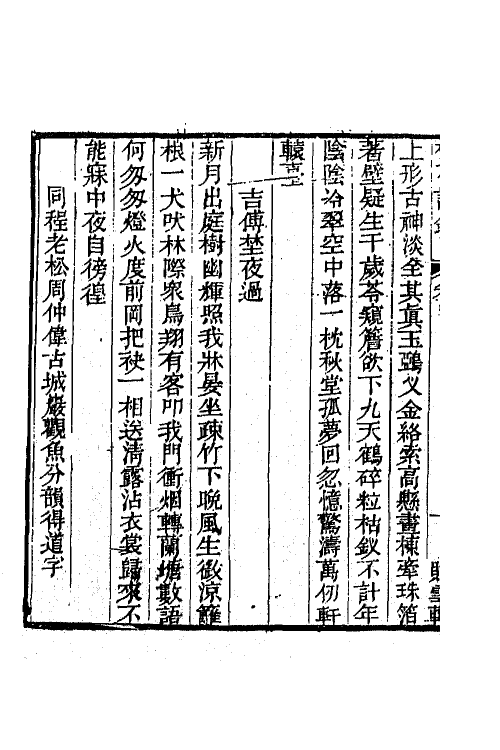 上形古神淡全其眞玉鵶乂金絡索高懸畫棟牽珠箔
著壁疑生千歲苓窺簷欲下九天鶴碎粒枯釵不計年
陰陰冷翠空中落一枕秋堂孤夢回忽憶驚濤萬仞軒
轅臺
吉傅埜夜過
新月出庭樹幽輝照我牀晏坐疎竹下晚風生微涼籬
根一犬吠林際衆鳥翔有客叩我門衝烟轉蘭塘數語
何匆匆燈火度前岡把袂一相送清露沾衣裳歸來不
能寐中夜自徬徨
同程老松周仲偉古城巖觀魚分韻得道字